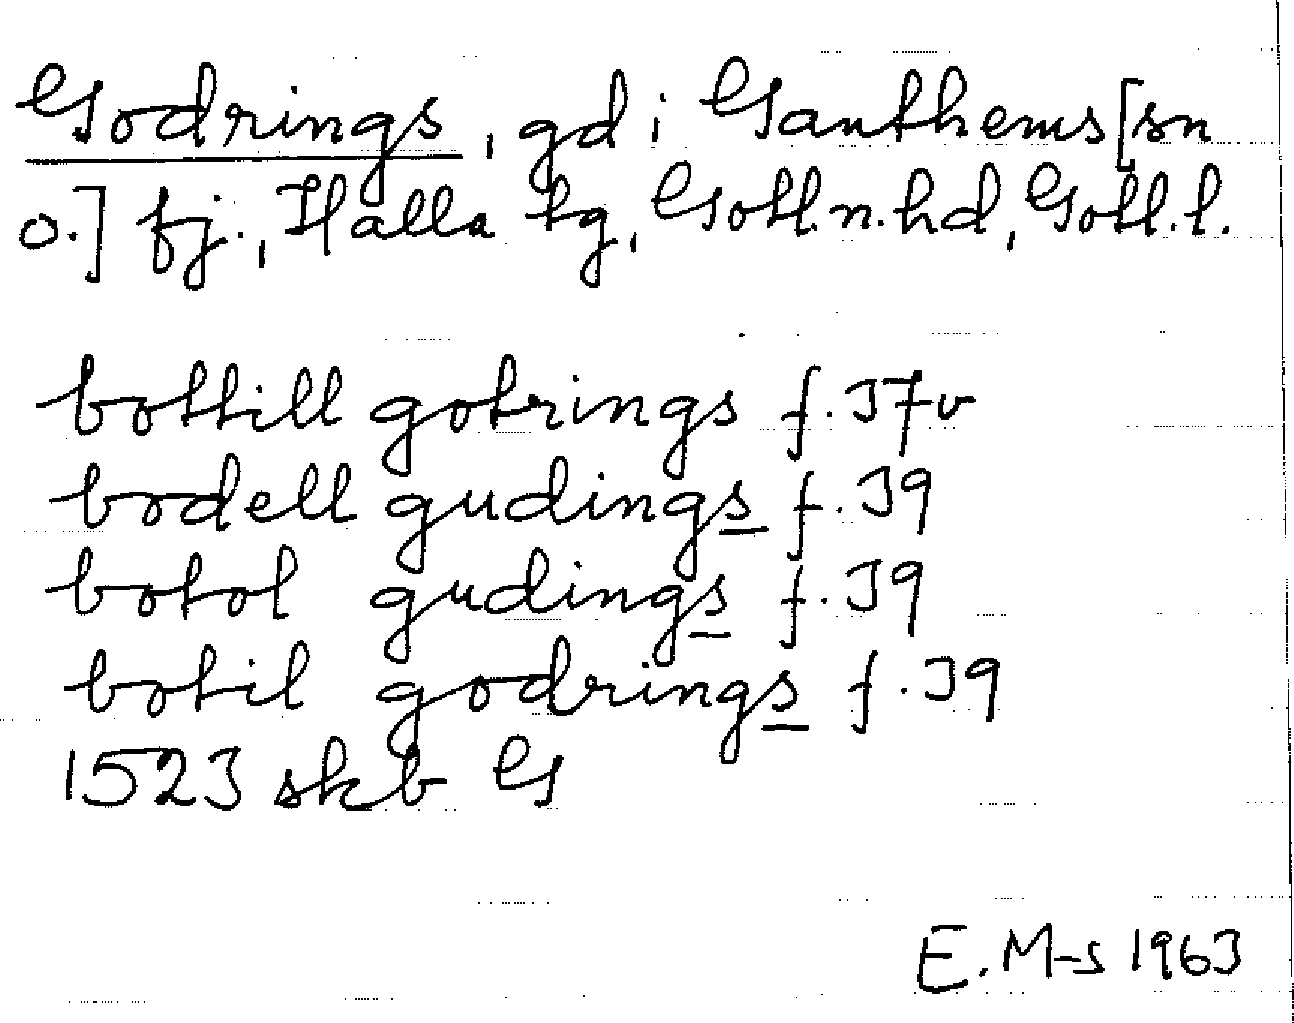 Godrings, gd i Ganthems [sn
o.] fj., Halla tg, Gotl.n.hd, Gotl.l.
bottill gotrings f. 37v
bodell gudings f. 39
botol gudings f. 39
botil godrings f. 39
1523 skb G
E. M-s 1963